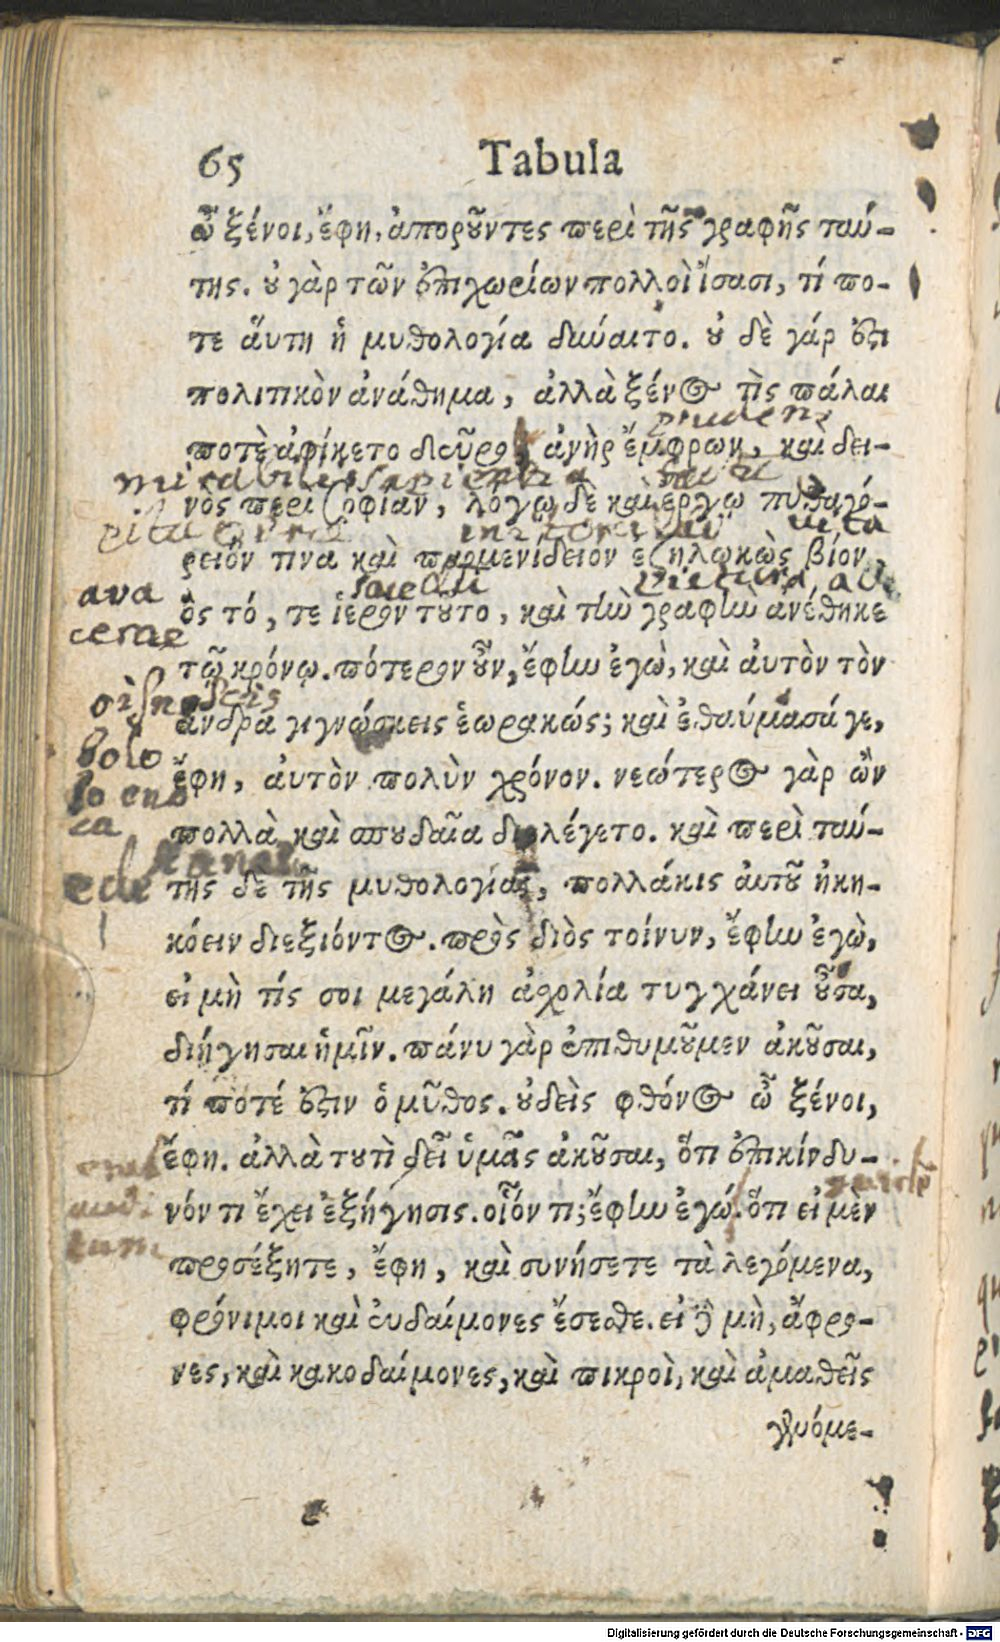 65 Tabula
ὦ ξένοι, ἔφη, ἀποροῦντες περὶ τῆς γραφῆς ταύ-
της. οὐ γὰρ τῶν ἐπιχωρίων πολλοὶ ἴσασι, τί πο-
τε ἅυτη ἡ μυθολογία δύναιτο. οὐ δὲ γάρ ἐστι
πολιτικὸν ἀνάθημα, ἀλλὰ ξένος τὶς πάλαι
prudens
ποτὲ ἀφίκετο δεῦρο, ἀνὴρ ἔμφρων, καὶ δει-
mirabilis sapientia
νὸς περὶ σοφίαν, λόγῳ δὲ καὶ ἔργῳ πυθαγό-
vita
ρειόν τινα καὶ παρμενίδειον ἐζηλωκὼς βίον,
pictura
ὃς τό, τε ἱερὸν τοῦτο, καὶ τὴν γραφὴν ἀνέθηκε
τῷ κρόνῳ. πότερον οὖν, ἔφην ἐγὼ, καὶ ἀυτὸν τὸν
ἄνδρα γιγνώσκεις ἑωρακώς; καὶ ἐθαύμασά γε,
ἔφη, ἀυτὸν πολὺν χρόνον. νεώτερος γὰρ ὢν
πολλὰ καὶ σπουδαῖα διελέγετο. καὶ περὶ ταύ-
της δὲ τῆς μυθολογίας, πολλάκις ἀυτοῦ ἠκη-
κόειν διεξιόντος. πρὸς διὸς τοίνυν, ἔφην ἐγὼ,
εἰ μὴ τίς σοι μεγάλη ἀσχολία τυγχάνει οὖσα,
διήγησαι ἡμῖν. πάνυ γὰρ ἐπιθυμοῦμεν ἀκοῦσαι,
τί ποτέ ἐστιν ὁ μῦθος. οὐδεὶς φθόνος ὦ ξένοι,
ἔφη. ἀλλὰ τουτὶ δεῖ ὑμᾶς ἀκοῦσαι, ὅτι ἐπικίνδυ-
νόν τι ἔχει ἐξήγησις. οἷόν τι; ἔφην ἐγώ. ὅτι εἰ μὲν
προσέξητε, ἔφη, καὶ συνήσετε τὰ λεγόμενα,
φρόνιμοι καὶ ἐυδαίμονες ἔσεσθε. εἰ δὲ μὴ, ἄφρο-
νες, καὶ κακοδαίμονες, καὶ πικροὶ, καὶ ἀμαθεῖς
γενόμε-
Digitalisierung gefördert durch die Deutsche Forschungsgemeinschaft - DFG